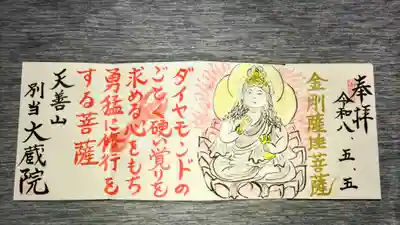 奉拝
令和八.五.五
金剛薩埵菩薩
ダイヤモンドの
ごとく硬い覚りを
求める心をもち
勇猛に修行を
する菩薩
天善山
別当大蔵院